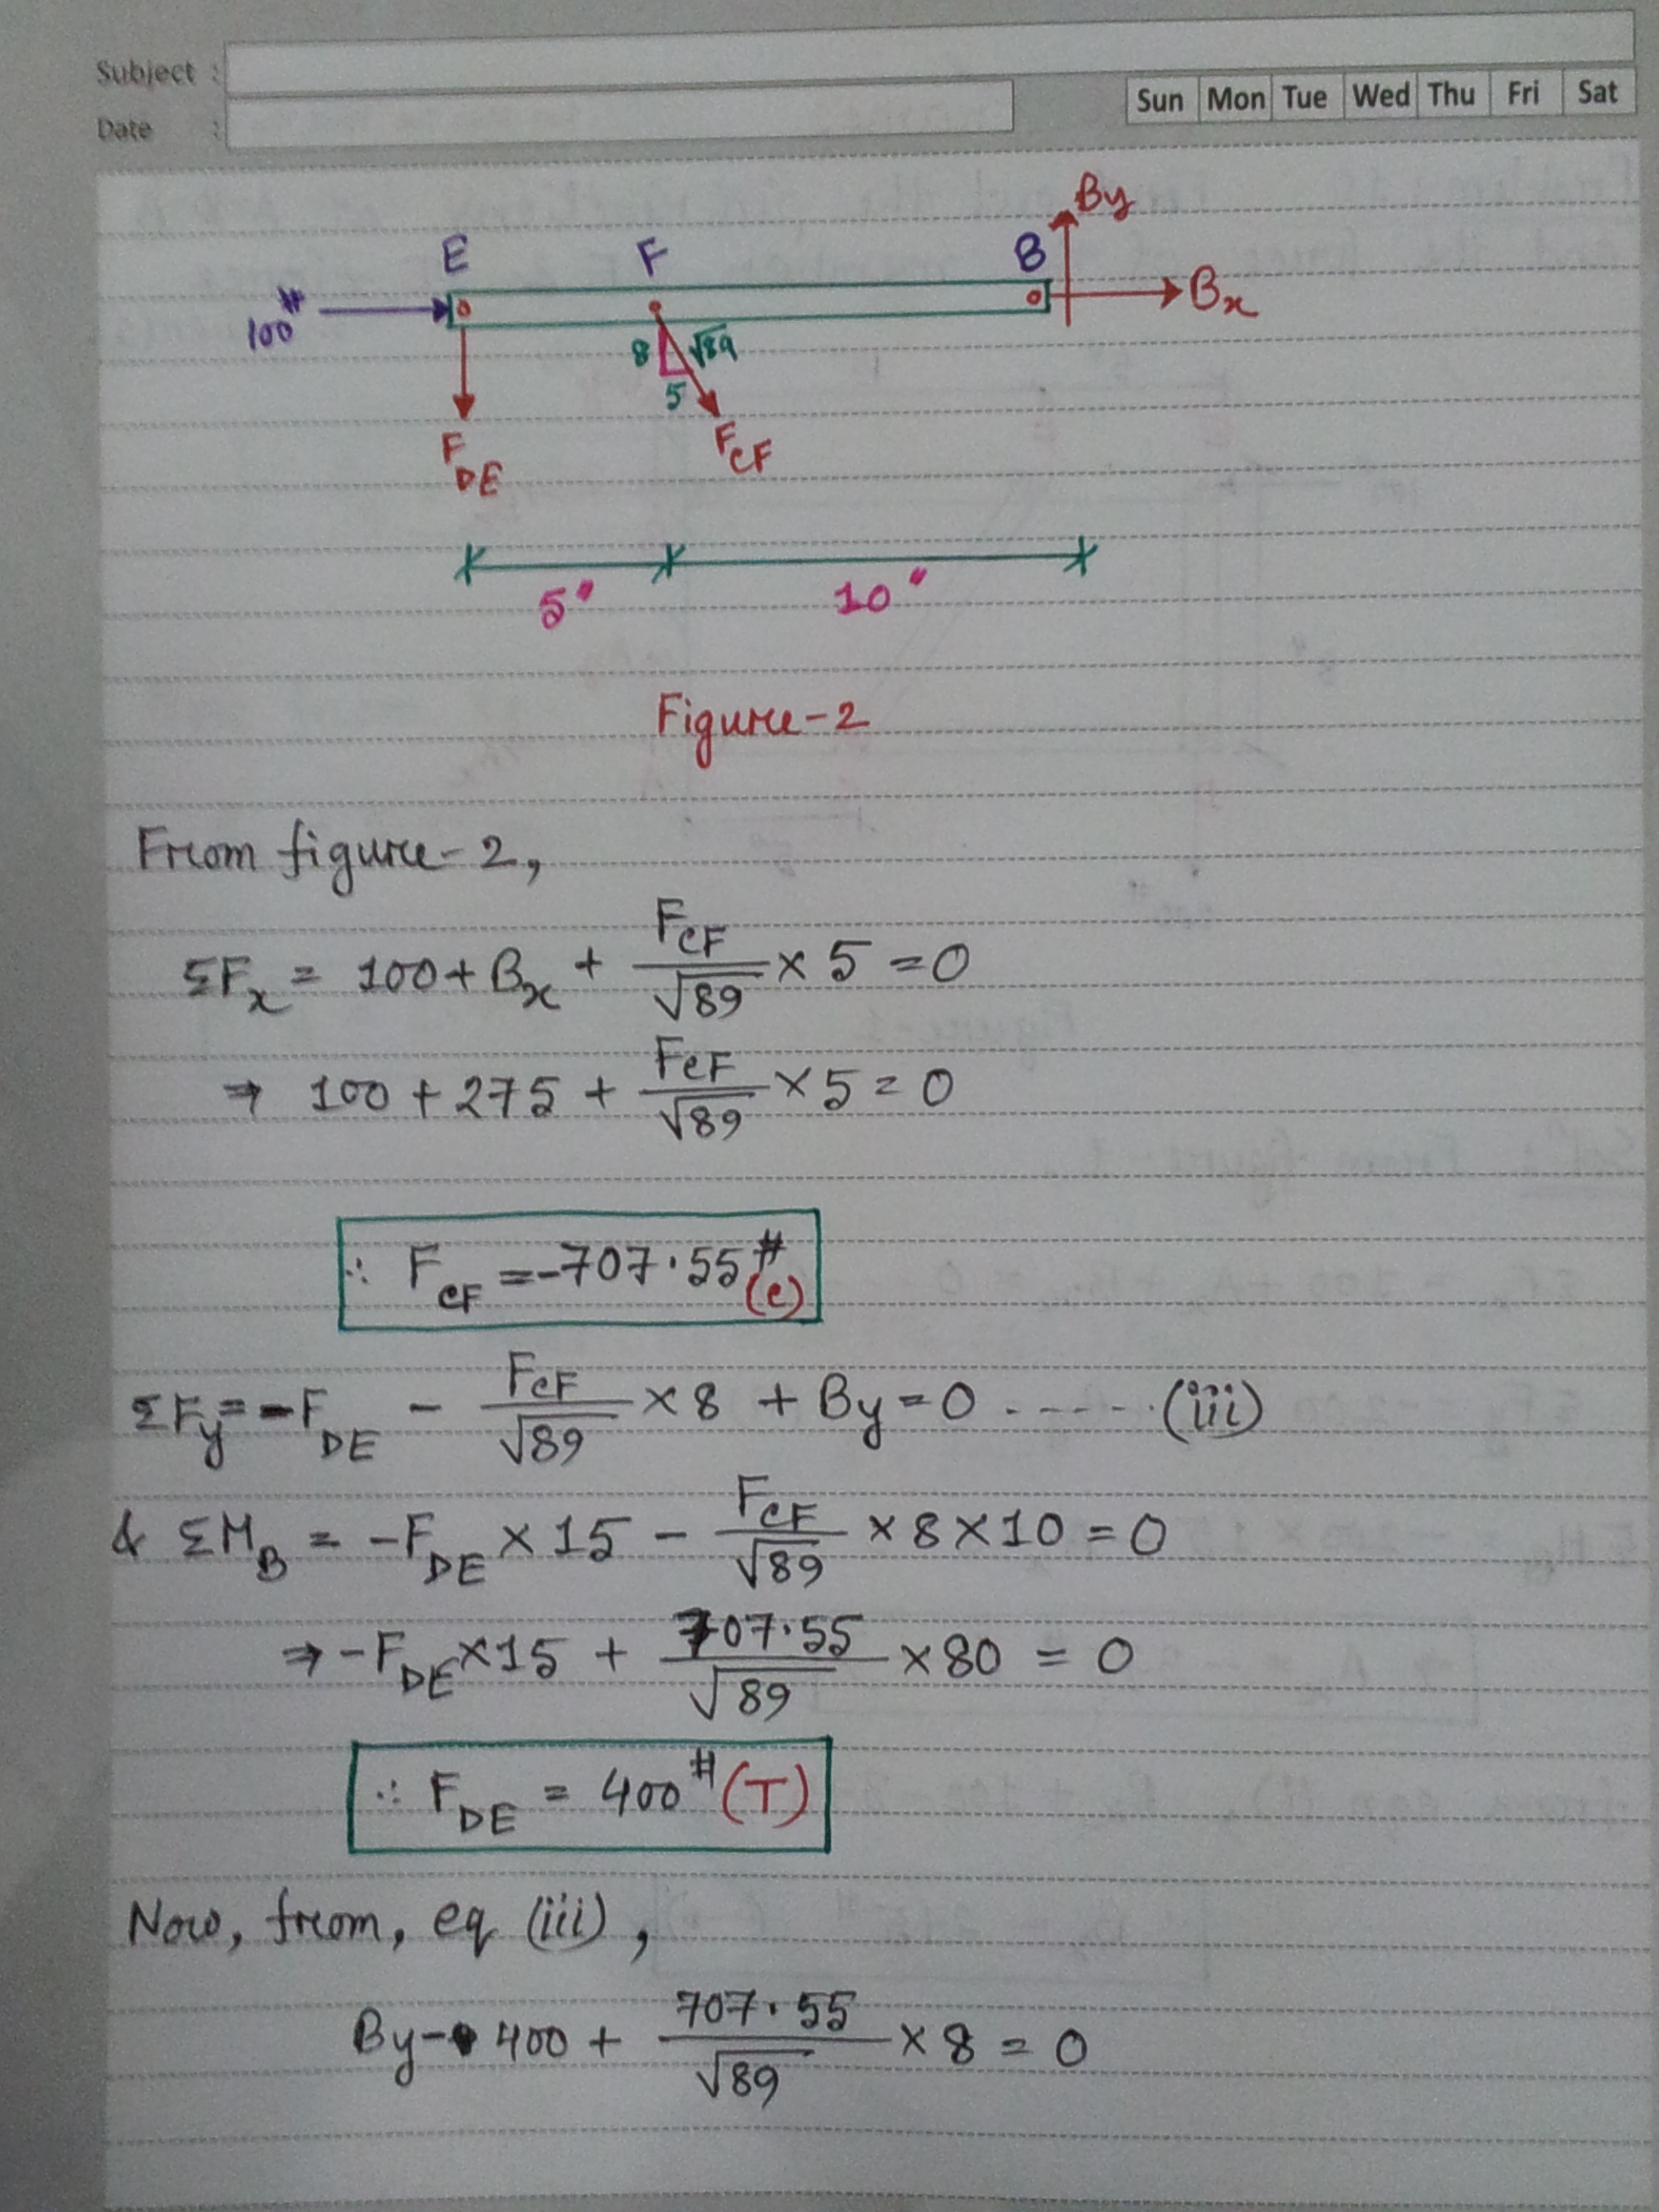 Subject :
Date :
Sun Mon Tue Wed Thu Fri Sat
By
E F B
100# Bx
8 √89
5
F_DE F_CF
5" 10"
Figure-2
From figure-2,
ΣFx = 100 + Bx + F_CF/√89 × 5 = 0
⇒ 100 + 275 + F_CF/√89 × 5 = 0
∴ F_CF = -707.55# (C)
ΣFy = -F_DE - F_CF/√89 × 8 + By = 0 ------(iii)
& ΣM_B = -F_DE × 15 - F_CF/√89 × 8 × 10 = 0
⇒ -F_DE × 15 + 707.55/√89 × 80 = 0
∴ F_DE = 400# (T)
Now, from, eq (iii),
By - 400 + 707.55/√89 × 8 = 0